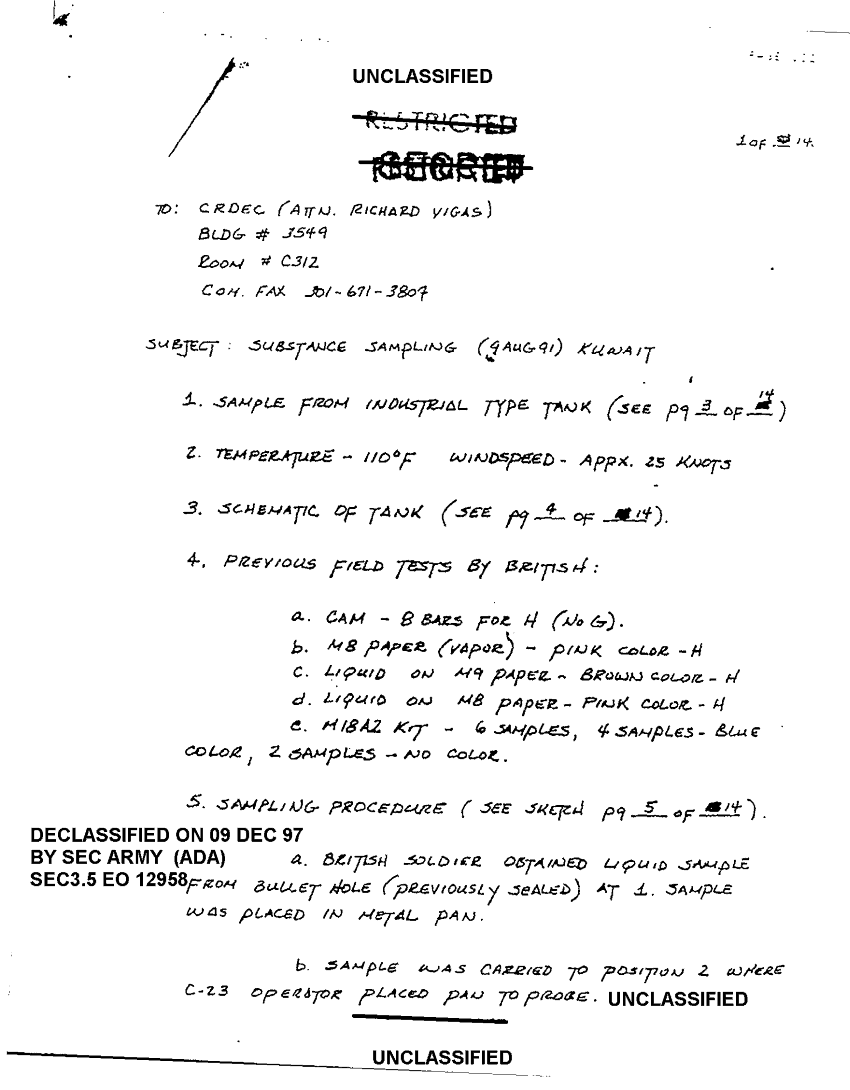 UNCLASSIFIED
RESTRICTED
1 OF 14.
TO: CRDEC (ATTN. RICHARD VIGAS)
BLDG # 3549
ROOM # C312
COM. FAX 301-671-3807
SUBJECT: SUBSTANCE SAMPLING (9AUG91) KUWAIT
1. SAMPLE FROM INDUSTRIAL TYPE TANK (SEE pg 3 OF 14)
2. TEMPERATURE - 110°F WINDSPEED - APPX. 25 KNOTS
3. SCHEMATIC OF TANK (SEE pg 4 OF 14).
4. PREVIOUS FIELD TESTS BY BRITISH:
a. CAM - 8 BARS FOR H (NO G).
b. M8 PAPER (VAPOR) - PINK COLOR - H
c. LIQUID ON M9 PAPER - BROWN COLOR - H
d. LIQUID ON M8 PAPER - PINK COLOR - H
e. M18A2 KIT - 6 SAMPLES, 4 SAMPLES - BLUE
COLOR, 2 SAMPLES - NO COLOR.
5. SAMPLING PROCEDURE (SEE SKETCH pg 5 OF 14).
DECLASSIFIED ON 09 DEC 97
BY SEC ARMY (ADA) a. BRITISH SOLDIER OBTAINED LIQUID SAMPLE
SEC3.5 EO 12958 FROM BULLET HOLE (PREVIOUSLY SEALED) AT 1. SAMPLE
WAS PLACED IN METAL PAN.
b. SAMPLE WAS CARRIED TO POSITION 2 WHERE
C-23 OPERATOR PLACED PAN TO PROBE. UNCLASSIFIED
UNCLASSIFIED